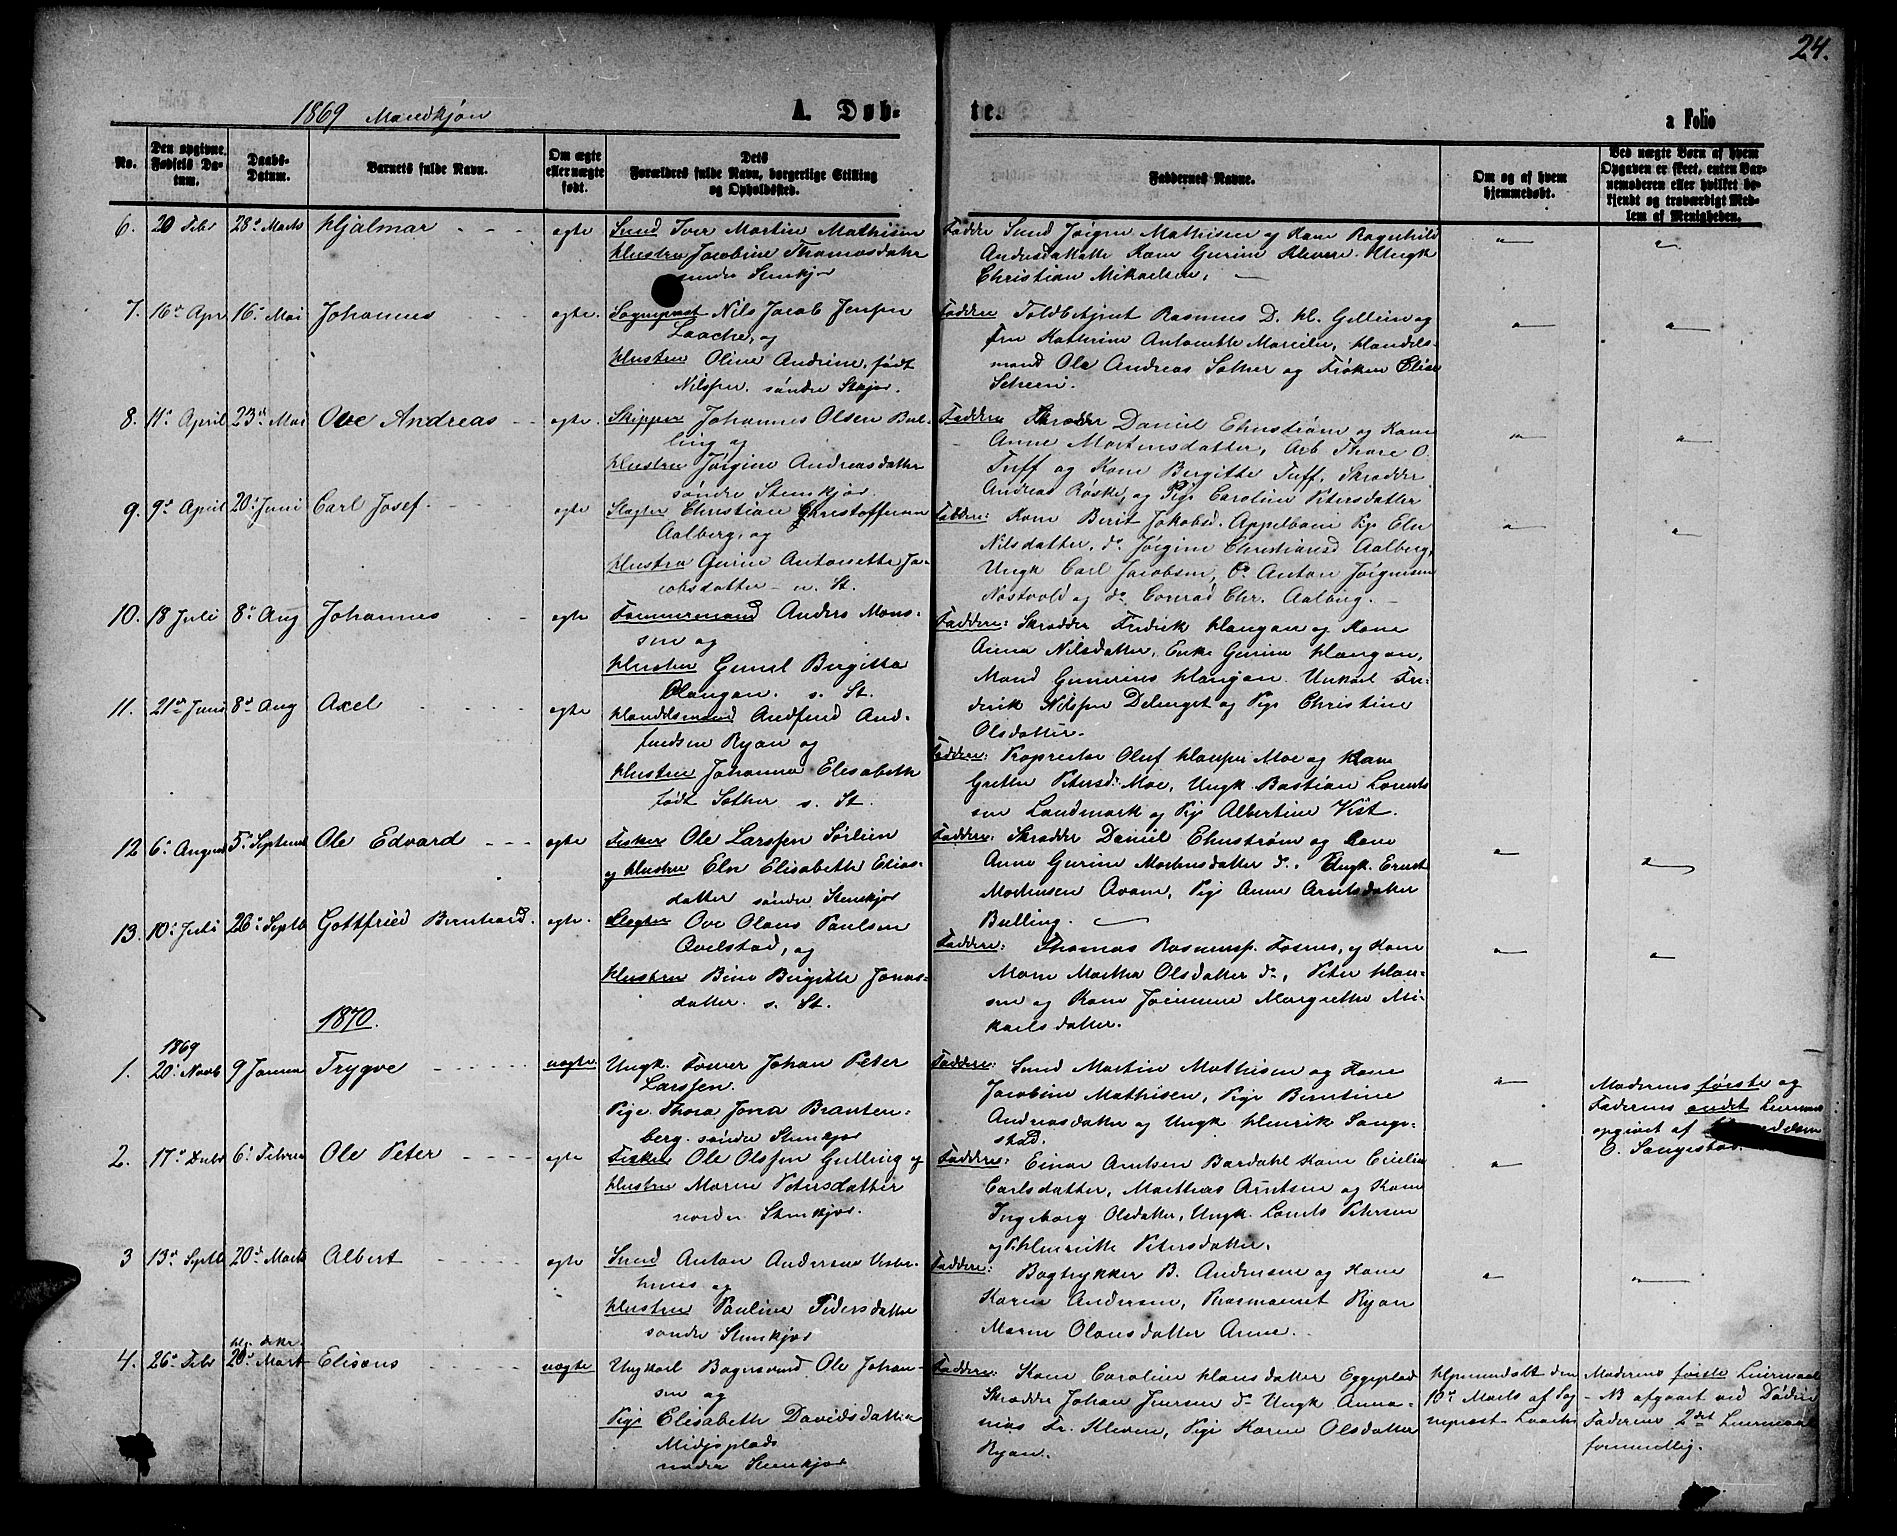 24.
1869 Mandkjøn
A. Døb-
te.
a Folio
No.
Den opgivne Fødsels Datum.
Daabs-Datum.
Barnets fulde Navn.
Om ægte eller uægte født.
Dets Forældres fulde Navn, borgerlige Stilling og Opholdssted.
Faddernes Navne.
Om og af hvem hjemmedøbt.
Ved uægte Børn af hvem Opgaven er skeet, enten Barnemoderen eller hvilket bekjendt og troværdigt Medlem af Menigheden.
6. 20 Febr 28de Marts Hjalmar ægte
Smed Iver Martin Mathisen
Hustru Jacobine Thomasdatter
søndre Stenkjær
Faddere Smed Jørgen Mathisen og Kone Ragnhild
Andersdatter Kone Gurine Kleven. Ungk
Christian Mikaelsen.
7. 16de Apr 16de Mai Johannes ægte.
Sogneprest Nils Jacob Jensen
Laache, og
Hustru Oline Andrine, født
Nilssen. søndre Stkjær.
Faddere Toldbetjent Rasmus D. Kl. Gellein og
Fru Kathrine Antonette Handels-
mand Ole Andreas Sother og Frøken Elise
Scheen.
8. 11te April 23de Mai Ove Andreas ægte.
Skipper Johannes Olsen Bul-
ling og
Hustru Jørgine Andreasdatter
søndre Stenkjær.
Faddere Skrædder Daniel Ehnstrøm og Kone
Anne Mortensdatter, Arb Thore O.
Tuff og Kone Birgitte Tuff, Skrædder
Andreas Røske, og Pige Caroline Petersdatter
9. 9de April 20de Juni Carl Josef ægte
Slagter Christian Christoffersen
Aalberg, og
Hustru Gurine Antonette Ja-
cobsdatter n. St.
Faddere: Kone Berit Jakobsd. Appelbom Pige Elen
Nilsdatter, do Jørgine Christiansd Aalberg,
Ungk Carl Jacobsen, do Anton Jørgensen
Nøstvold og do Conrad Chr. Aalberg.
10. 18 Juli 8de Aug Johannes ægte
Tømmermand Anders Mons-
sen og
Hustru Gunel Birgitta
Hangan. s. St.
Faddere: Skrædder Fredrik Hangan og Kone
Anna Nilsdatter, Enke Gurine Hangan,
Mand Gunerius Hangan. Unkarl Fre-
derik Nilssen Delenget og Pige Christine
Olsdatter.
11. 21de Juni 8de Aug Axel ægte
Handelsmand Andfind And-
findsen Ryan og
Hustru Johanna Elisabeth
født Sother s. St.
Faddere: Proprietær Oluf Hansen Moe og Kone
Grethe Petersd: Moe, Ungk Bastian Lorents
sen Landmark og Pige Albertine Vist.
12 6te August 5te Septemb Ole Edvard ægte
Fisker Ole Larssen Sørlien
og Hustru Elen Elisabeth Elias-
datter søndre Stenkjær
Faddere: Skrædder Daniel Ehnstrøm og Kone
Anne Gurine Mortensdatter do, Ungk. Ernst
Mortensen Avam, Pige Anne Arntsdatter
Bulling.
13. 10de Juli 26de Septb Gottfried Bernhard. ægte.
Slagter Ove Olaus Paulsen
Avelstad, og
Hustru Bine Birgitte Jonas-
datter. s. St.
Faddere: Thomas Rasmuss. Fosnes, og Kone
Maren Martha Olsdatter do, Peter Han-
sen og Kone Margrethe Mi-
kaelsdatter.
1870.
1869
1. 20de Novb 9 Januar Trygve uægte.
Ungk. Johan Peter
Larssen.
Pige Thora Jona Branten-
berg. søndre Stenkjær
Faddere: Smed Martin Mathisen og Kone
Jacobine Mathisen, Pige Berntine
Andreasdatter og Ungk Henrik Sange-
stad.
Moderens første og
Faderens andet Leiermaal
opgivet af
O. Sangestad.
2. 17de Decbr 6te Februar Ole Peter ægte
Fisker Ole Olssen Gulling og
Hustru Maren Petersdatter
nordre Stenkjær.
Faddere: Einar Arntsen Bardahl Kone
Carlsdatter, Mathias Arntsen og Kone
Ingeborg Olsdatter, Ungk. Lorents Petersen
og P. Henrikke Petersdatter.
3 13de Septb 20de Marts Albert ægte
Smed Anton Andersen
og
Hustru Pauline Pedersdatter
søndre Stenkjær
Faddere: Bogtrykker B. Andersen og Kone
Karen Andersen, Ryan
Maren Olausdatter Anne.
4. 26de Febr 20de Marts Elisæus uægte
Ungkarl Bognsvend Ole Johan-
sen og
Pige Elisabeth Davidsdatter
Midjoplads
nordre Stenkjær
Faddere: Kone Caroline Hansdatter Eggeplad
Skrædder Johan Jensen do Ungk Anna-
nias Fr. Kleven, Pige Karen Olsdatter
Ryan.
Hjemmedøbt den
10de Marts af Sog
neprest Laache
Moderens første Leiermaal
– NB afgaaet ved Døden
Faderens 2det Leiermaal
formentlig.